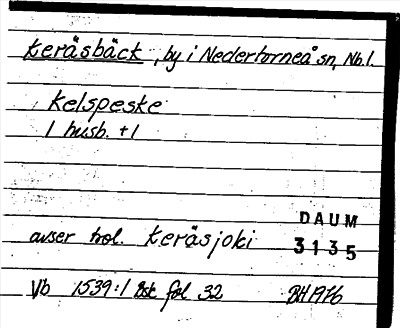 Keräsbäck, by i Nedertorneå sn, Nb.l.
Kelspeske
1 husb. +1
DAUM
avser trol. Keräsjoki
3135
Vb 1539:1 Bsk fol 32 BH 1976